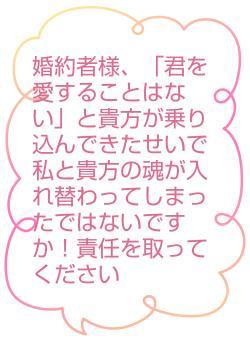 婚約者様、「君を
愛することはな
い」と貴方が乗り
込んできたせいで
私と貴方の魂が入
れ替わってしまっ
たではないです
か！責任を取って
ください